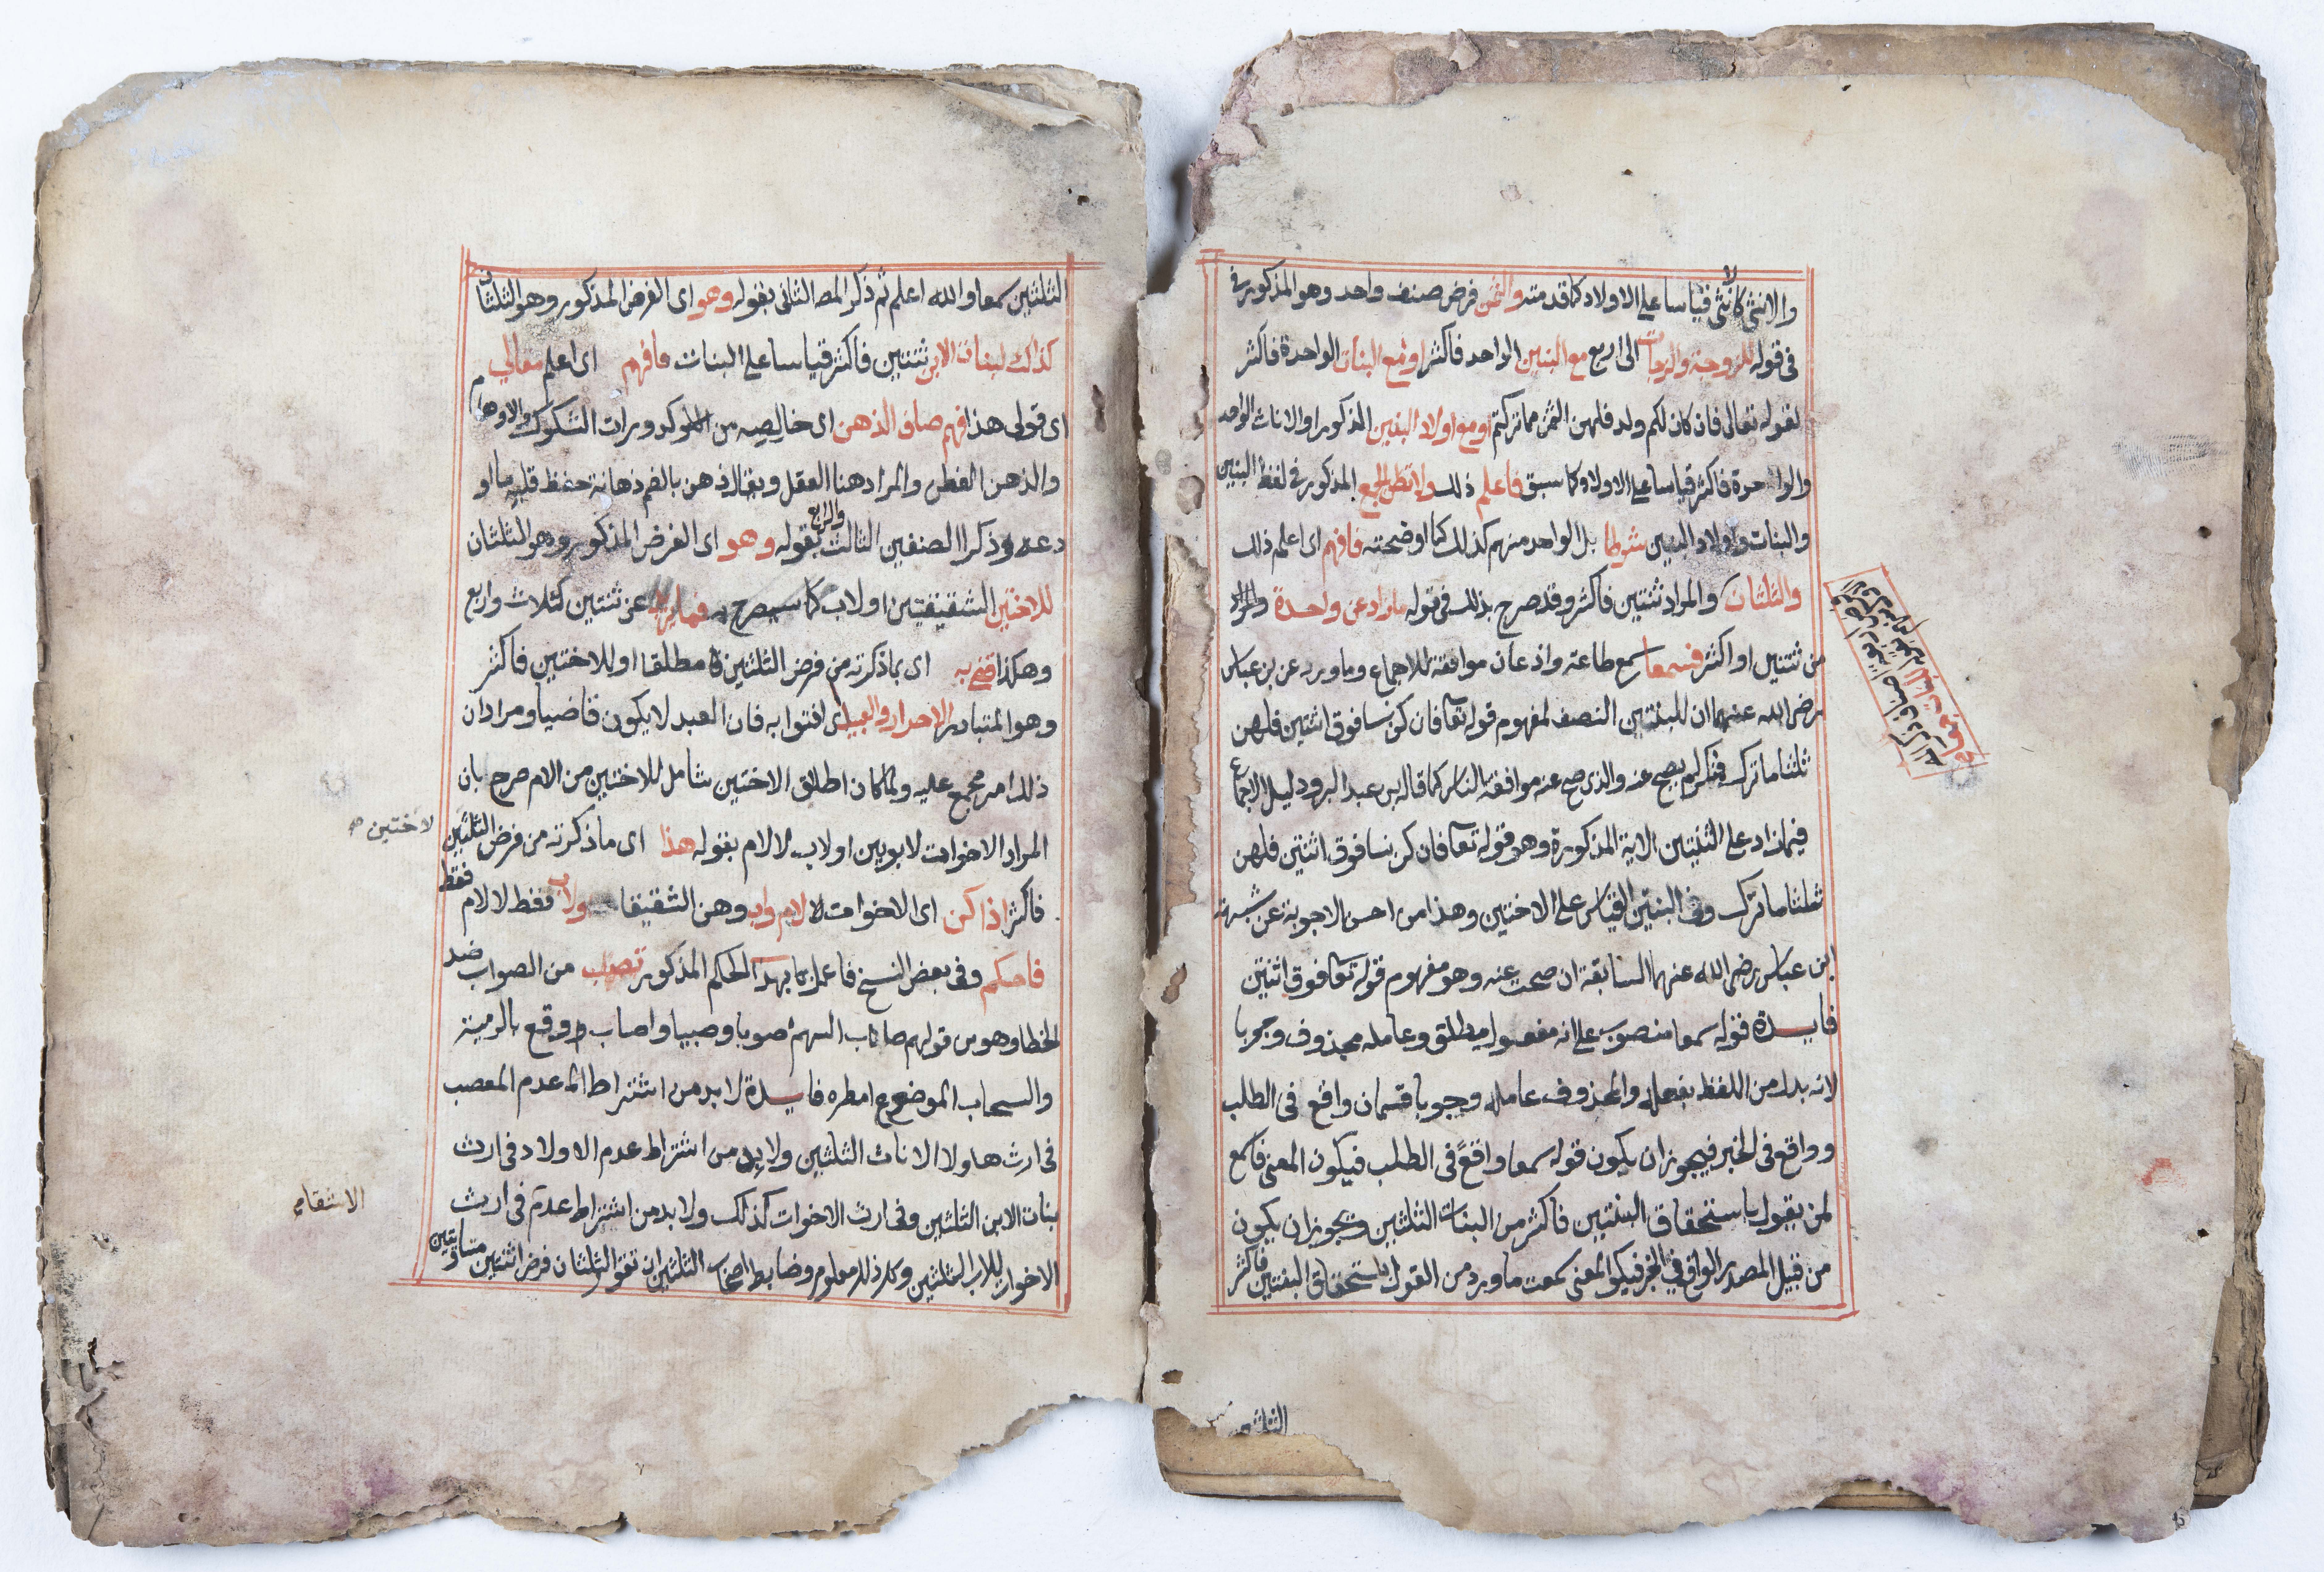 والانثى كالانثى قياسا على الاولاد كما قدمته والثمن فرض صنف واحد وهو المذكور
فى قوله للزوجة والزوجات الى اربع مع البنين الواحد فاكثر او مع البنات الواحدة فاكثر
لقوله تعالى فان كان لكم ولد فلهن الثمن مما تركتم او مع اولاد البنين الذكور او الاناث الواحد
والواحدة فاكثر قياسا على الاولاد كما سبق فاعلم ذلك ولا تظن الجمع المذكور فى لفظ البنين
والبنات واولاد البنين شرطا بل الواحد منهم كذلك كما اوضحته فافهم اى اعلم ذلك
والثلثان والمراد ثنتين فاكثر وقد صرح بذلك فى قوله مازاد عن واحدة والمراد
من ثنتين او اكثر فسمعا سمع طاعة واذعان موافقة للاجماع وما ورد عن بن عباس
رضى الله عنهما ان للبنتين النصف لمفهوم قوله تعا فان كن نسا فوق اثنتين فلهن
ثلثا ما ترك فمنكر لم يصح عنه والذى صح عنه موافقة الناس كما قاله ابن عبد البر ودليل الاجماع
فيما زاد على الثنتين الاية المذكورة وهو قوله تعا فان كن نسا فوق اثنتين فلهن
ثلثا ما ترك وفى البنتين القياس على الاختين وهذا من احسن الاجوبة عن شبهة
ابن عباس رضى الله عنهما السابقة ان صحت عنه وهو مفهوم قوله تعا فوق اثنتين
فايدة قوله سمعا منصوب على انه مفعول مطلق وعامله محذوف وجوبا
لانه بدل من اللفظ بفعله والمحذوف عامله وجوبا قسمان واقع فى الطلب
وواقع فى الخبر فيجوز ان يكون قوله سمعا واقعً فى الطلب فيكون المعنى فاسمع
لمن يقول باستحقاق البنتين فاكثر من البنات الثلثين ويجوز ان يكون
من قبيل المصدر الواقع فى الخبر فيكو المعنى سمعت ما ورد من القول باستحقاق البنتين فاكثر
الثلثين
الثلثين سمعا والله اعلم ثم ذكر المص الثانى بقوله وهو اى الفرض المذكور وهو الثلثان
كذاك لبنات الابن ثنتين فاكثر قياسا على البنات فافهم اى اعلم مقالي
اى قولى هذا فهم صافى الذهن اى خالصه من كدورات الشكوك والاوهام
والذهن الفطن والمراد هنا العقل ويقال ذهن بالفم ذهانة حفظ قلبه ما او
دعه وذكر الصنفين الثالث والرابع بقوله وهو اى الفرض المذكور وهو الثلثان
للاختين الشقيقتين او لاب كما سيصرح به فما يزيد عن ثنتين كثلاث واربع
وهكذا قضى به اى بما ذكرته من فرض الثلثين مطلقا او للاختين فاكثر
وهو المتبادر الاحرار والعبيد اى افتوا به فان العبد لا يكون قاضيا ومراد ان
ذلك امر مجمع عليه ولما كان اطلاق الاختين شامل للاختين من الام صرح بان
المراد الاخوات لابوين او لاب لا لام بقوله هذا اى ما ذكرته من فرض الثلثين
لاختين
فاكثر اذا كن اى الاخوات لام واب وهن الشقيقات ولاب فقط لا لام فقط
فاحكم وفى بعض النسخ فاعمل بهذا الحكم المذكور تصب من الصواب ضد
الخطا وهو من قولهم صاب السهم صوبا وصيبا واصاب وقع بالرمية
والسحاب الموضع امطره فايدة لا بد من اشتراط عدم المعصب
فى ارث هاولا الاناث الثلثين ولا بد من اشتراط عدم الاولاد فى ارث
بنات الابن الثلثين وفى ارث الاخوات كذلك ولا بد من اشتراط عدم فى ارث
الاشقاء
الاخوات للاب الثلثين وكل ذلك معلوم وضابط اصحاب الثلثين ان تقو الثلثان فرض اثنتين متساويتين